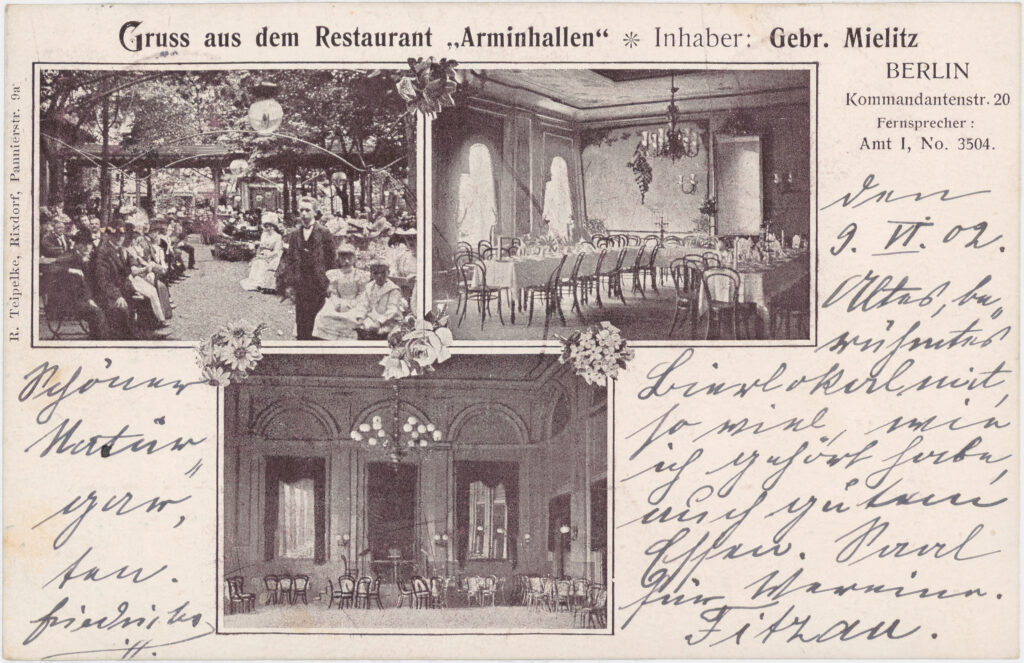 Gruss aus dem Restaurant „Arminhallen“ ❋ Inhaber: Gebr. Mielitz
BERLIN
Kommandantenstr. 20
Fernsprecher:
Amt I, No. 3504.
R. Teipelke, Rixdorf, Pannierstr. 9a
den
9. VI. 02.
Altes, be„
rühmtes
Bierlokal mit,
so viel, wie
ich gehört habe,
auch gutem
Essen. Saal
für Vereine.
Fitzau.
Schöner
Natur„
gar,
ten.